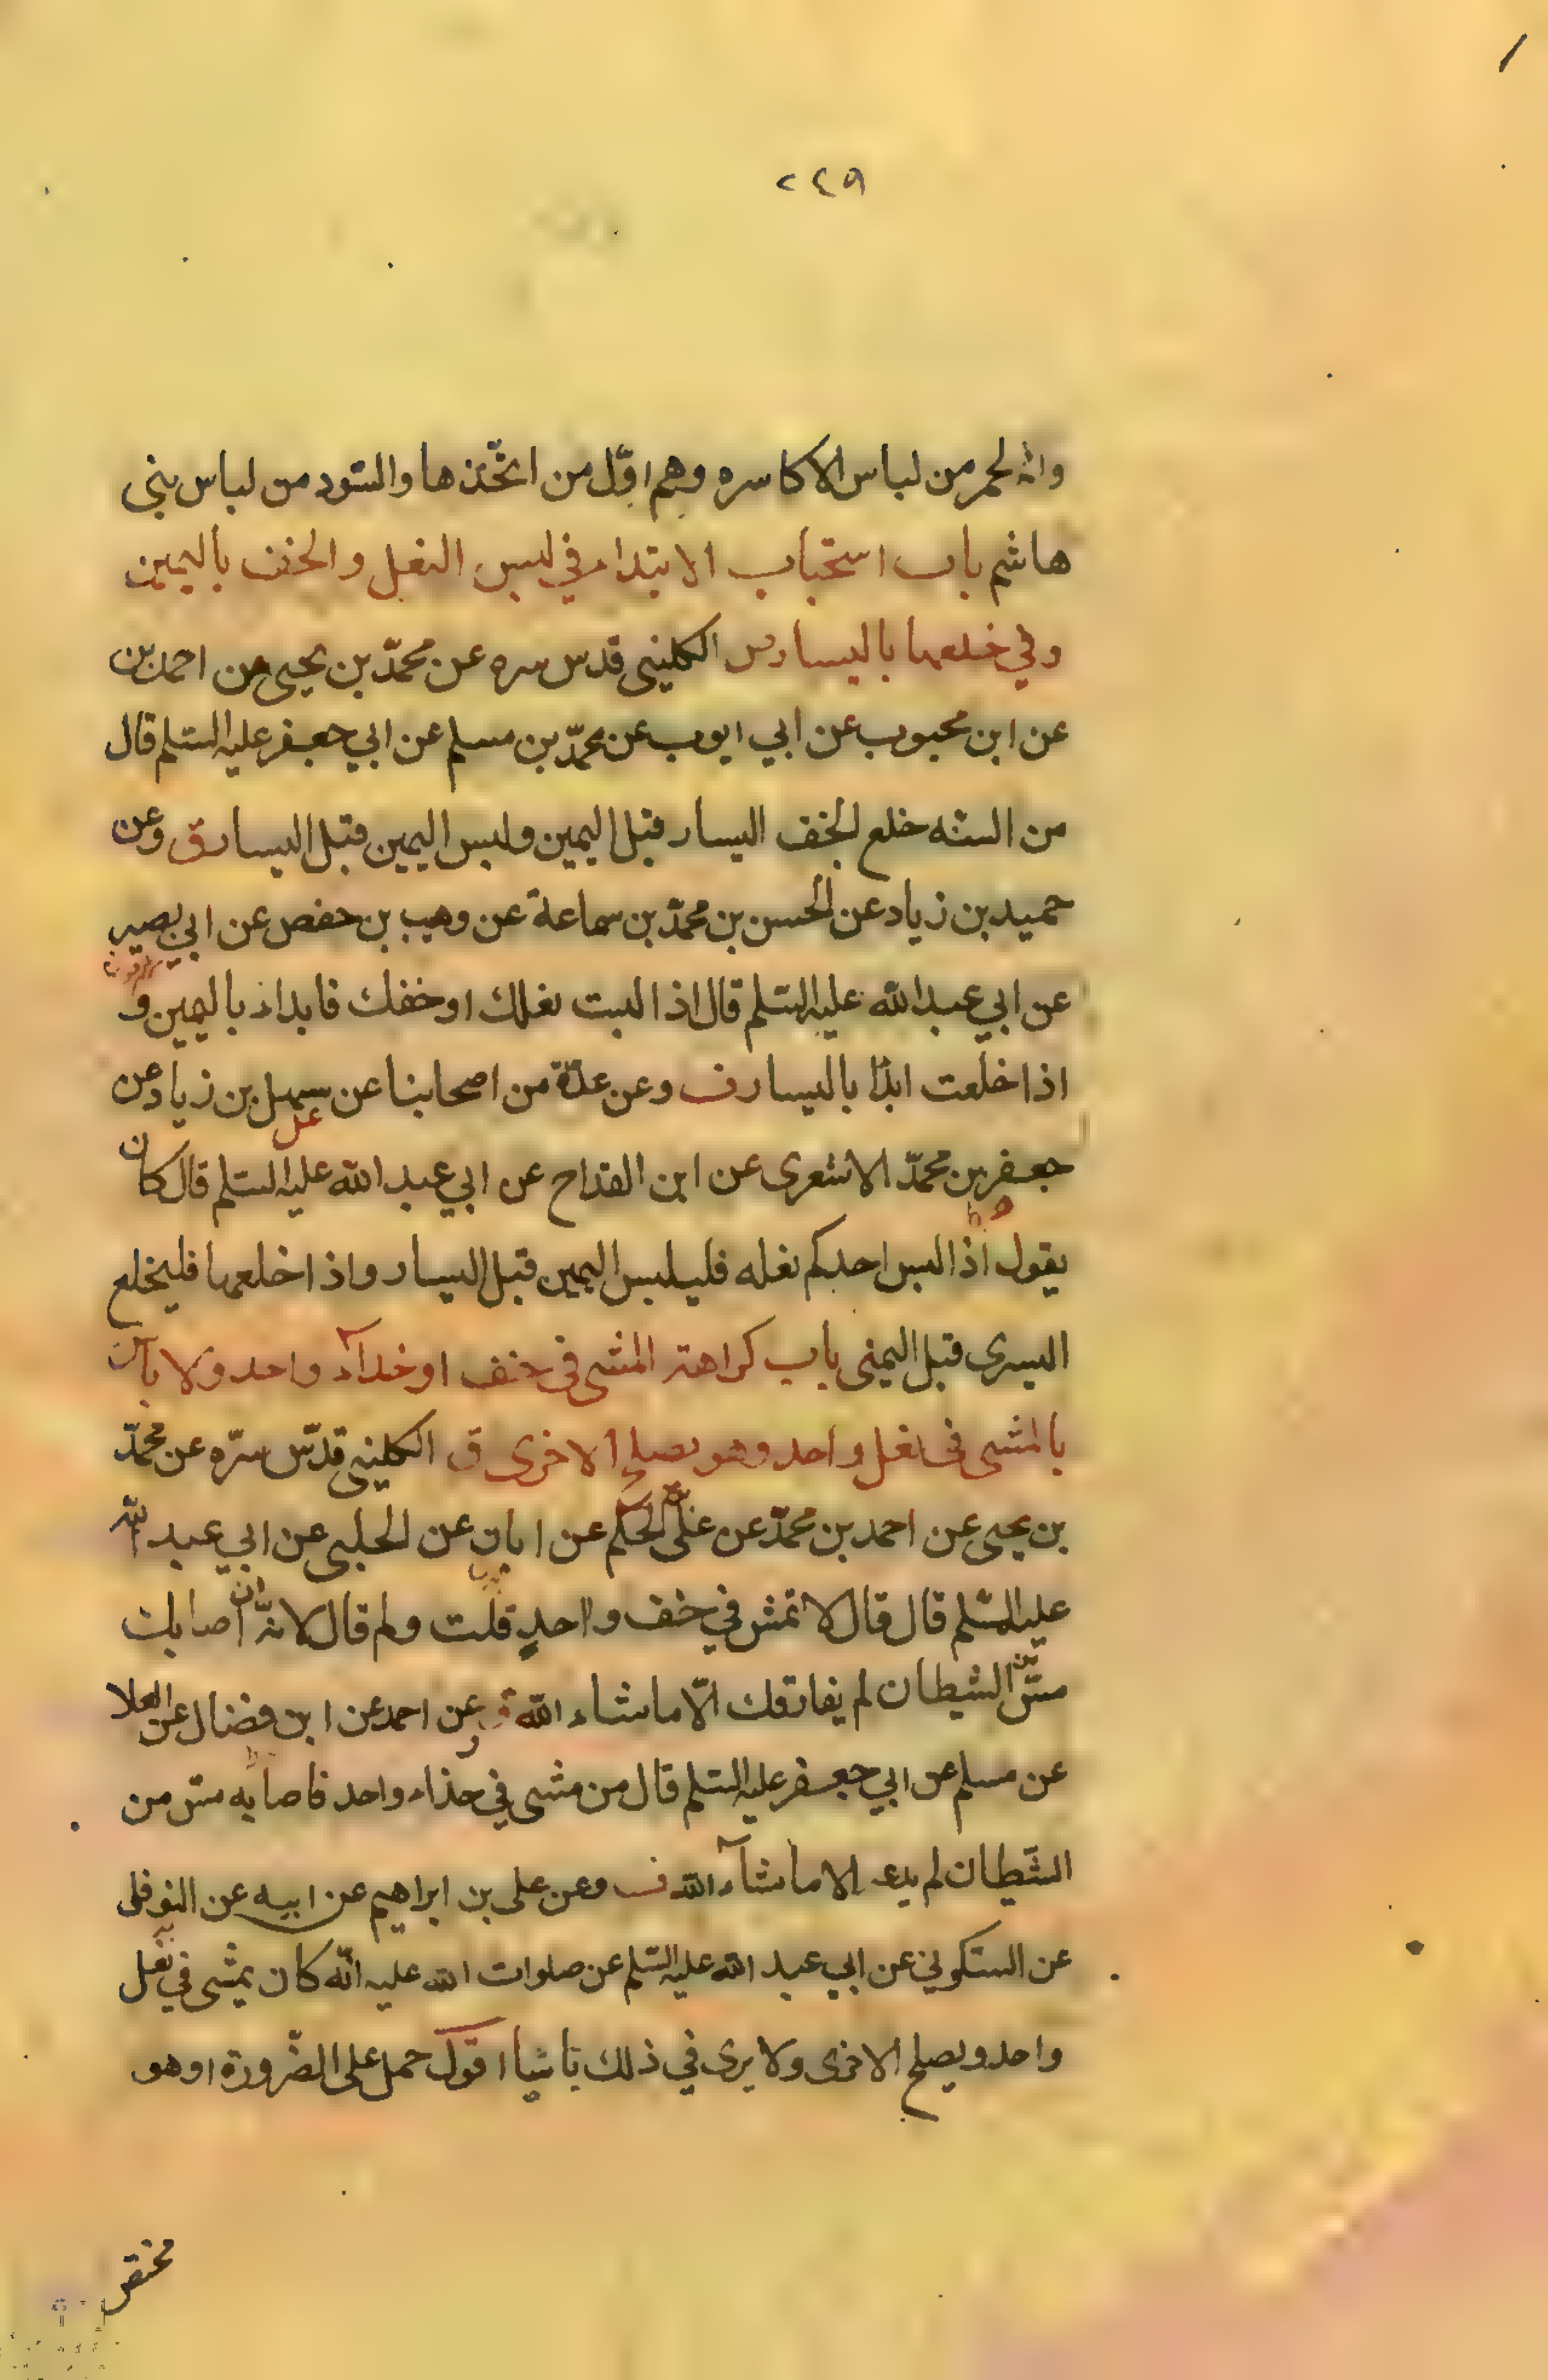 ٢٤٩
وانه الحمر من لباس الاكاسره وهم اوّل من اتخّذها والسّود من لباس بنى
هاشم باب استحباب الابتداء في لبس النعل والخف باليمين
وفي خلعهما باليسار س الكليني قدس سره عن محمّد بن يحيى عن احمد بن
عن ابن محبوب عن ابي ايوب عن محمّد بن مسلم عن ابي جعفر عليه السّلم قال
من السنّه خلع الخف اليسار قبل اليمين ولبس اليمين قبل اليسار ق وعن
حميد بن زياد عن الحسن بن محمّد بن سماعة عن وهيب بن حفص عن ابي بصير
عن ابي عبد الله عليه السّلم قال اذا لبست نعلك او خفك فابداء باليمين و
اذا خلعت ابدأ باليسار ف وعن عدّة من اصحابنا عن سهل بن زياد عن
جعفر بن محمّد الاشعرى عن ابن القداح عن ابي عبد الله عليه السّلم قال كان
يقول اذا لبس احدكم نعله فليلبس اليمين قبل اليسار واذا خلعها فليخلع
اليسرى قبل اليمنى باب كراهة المشى فى خف او حذآء واحد ولا بأس
بالمشى فى نعل واحد وهو يصلح الاخرى ق الكليني قدّس سرّه عن محمّد
بن يحيى عن احمد بن محمّد عن علىّ بن الحكم عن ابان عن الحلبى عن ابي عبد الله
عليه السّلم قال قال لا تمش في خف واحدٍ قلت ولم قال لانّه ان اصابك
مسّ من الشيطان لم يفارقك الّا ماشاء الله وعن احمد عن ابن فضال عن العلا
عن مسلم عن ابي جعفر عليه السّلم قال من مشى في حذاء واحد فاصابه مسّ من
الشّيطان لم يدعه الا ما شآء الله ف وعن على بن ابراهيم عن ابيه عن النوفلى
عن السّكوني عن ابي عبد الله عليه السّلم عن صلوات الله عليه انّه كان يمشى في نعل
واحد ويصلح الاخرى ولا يرى في ذلك باسا اقول حمل على الضّرورة او هو
مختص